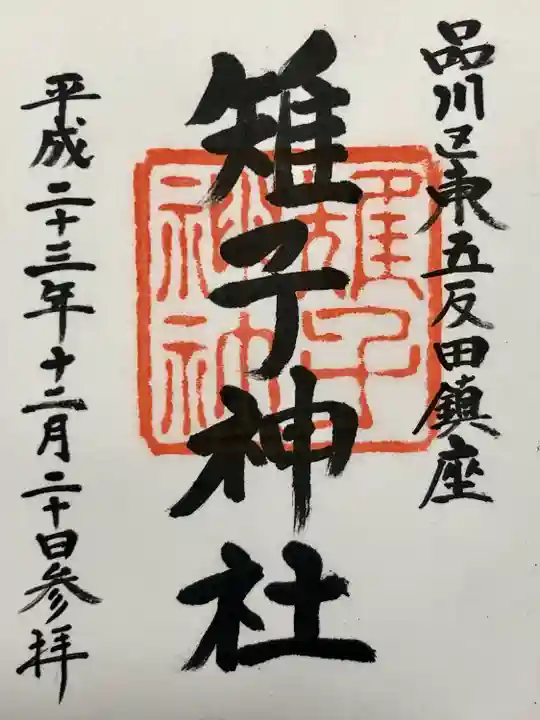 品川区東五反田鎮座
雉子神社
平成二十三年十二月二十日参拝